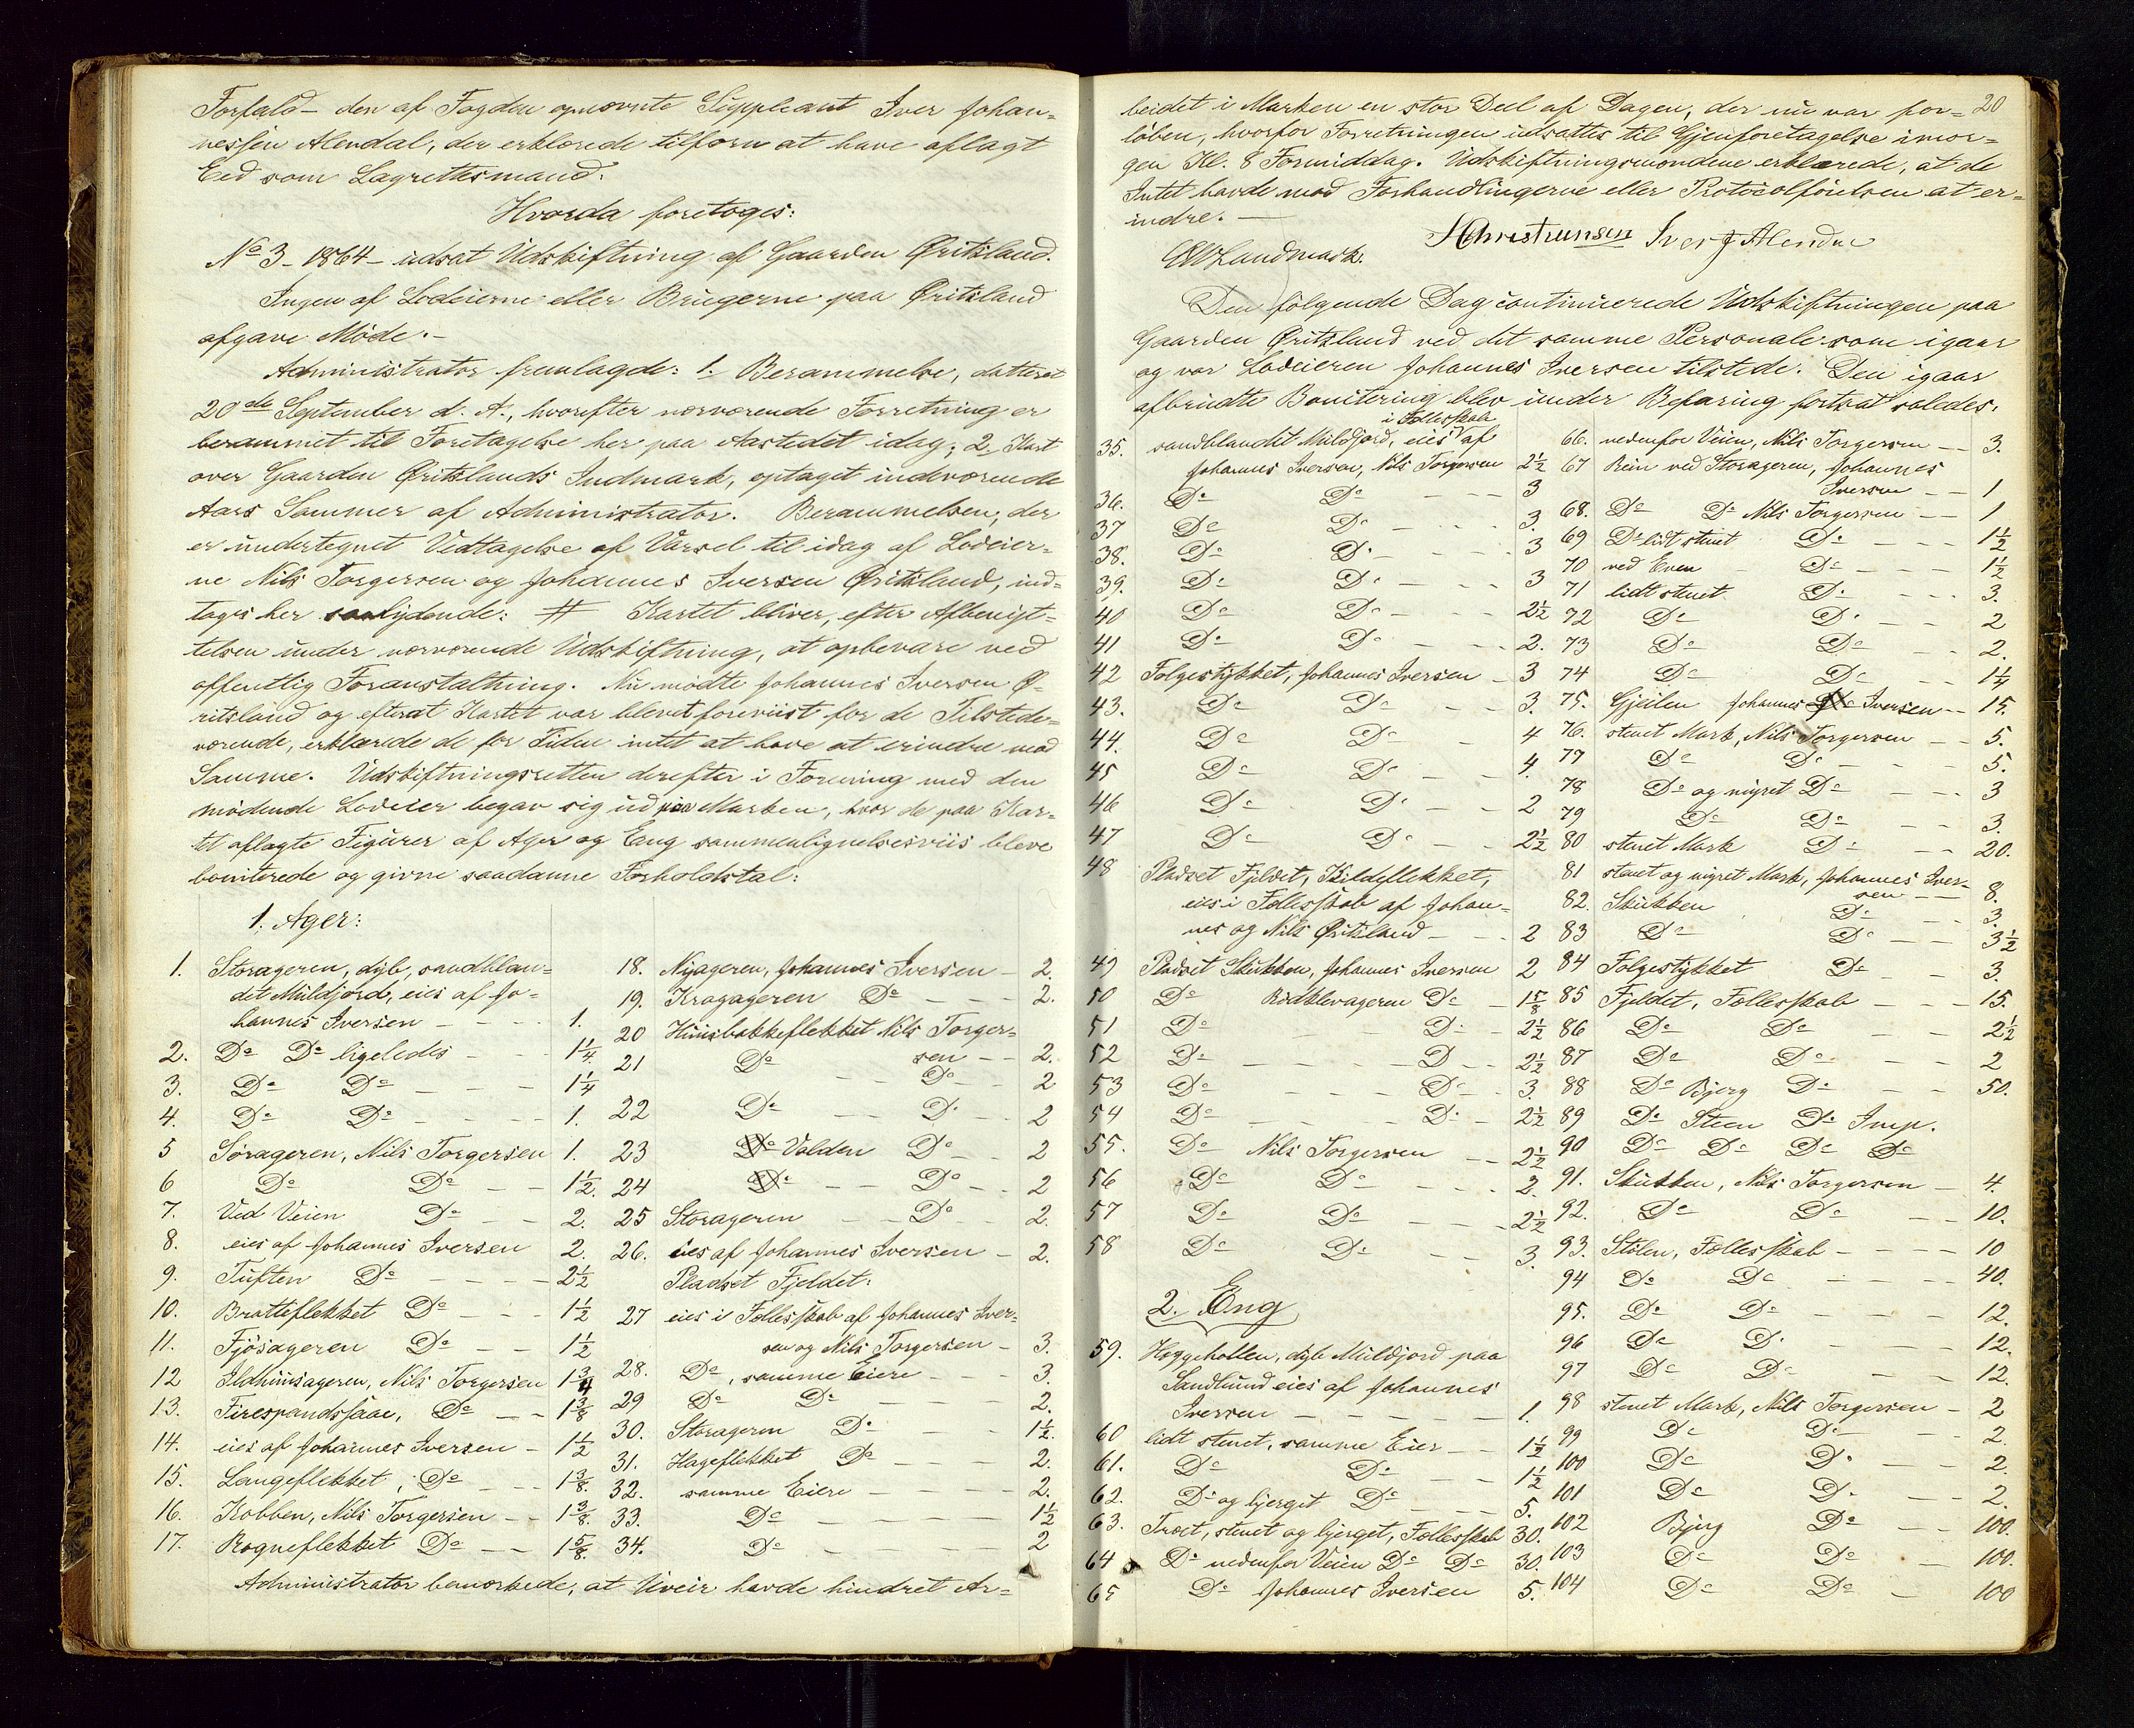 Forfald – den af Fogden opnævnte Suppleant Iver Johan=
nessen Alendal, der erklærede tilforn at have aflagt
Eed som Lagrettesmand.
Hvorda foretoges:
No 3 – 1864 – udsat Udskiftning af Gaarden Øritsland.
Ingen af Lodeierne eller Brugerne paa Øritsland
afgave Møde. –
Administrator fremlagde: 1. Berammelse, datteret
20de September d. A., hvorefter nærværende Forretning er
berammet til Foretagelse her paa Aastedet idag; 2. Kart
over Gaarden Øritslands Indmark, optaget indeværende
Aars Sommer af Administrator. Berammelsen, der
er undertegnet Vedtagelse af Varsel til idag af Lodeier=
ne Nils Torgersen og Johannes Iversen Øritsland, ind=
tages her saalydende: # Kartet bliver, efter Afbenyt=
telsen under nærværende Udskiftning, at opbevare ved
offentlig Foranstaltning. Nu mødte Johannes Iversen Ø=
ritsland og efterat Kartet var blevet foreviist for de Tilstede=
værende, erklærede de for Tiden intet at have at erindre mod
Samme. Udskiftningsretten derefter i Forening med den
mødende Lodeier begav sig ud paa Marken, hvor de paa Kar=
tet aflagte Figurer af Ager og Eng sammenlignelsesviis bleve
boniterede og givne saadanne Forholdstal:
1. Ager:
1. Storageren, dyb, sandblan=
det Muldjord, eies af Jo=
hannes Iversen – – – 1.
2. Do Do ligeledes – – 1 1/4.
3. Do Do – – – 1 1/4
4. Do Do – – – 1.
5 Sørageren, Nils Torgersen 1.
6 Do Do – – 1 1/2.
7. Ved Veien Do – – 2.
8. eies af Johannes Iversen 2.
9. Tuften Do – – – 2 1/2
10. Bratteflekket Do – – – 1 1/2
11. Fjøsageren Do – – 1 1/2
12 Ildhuusageren, Nils Torgersen 1 3/4
13. Firespandssaae, Do – – 1 3/8
14. eies af Johannes Iversen – 1 1/2
15. Langeflekket, Do – – 1 3/8.
16. Kobben, Nils Torgersen – – 1 3/8.
17. Rogneflekket Do – – 1 5/8.
18. Nyageren, Johannes Iversen – 2.
19. Kragageren Do – – – 2.
20 Huusbakkeflekket Nils Torger=
sen – – 2.
21 Do – – Do – 2
22 Do – – Do – 2
23 Do Volden Do – – 2
24 Do – – Do – – 2
25 Storageren – – Do – 2.
26. eies af Johannes Iversen – 2.
Pladset Fjeldet:
27 eies i Fællesskab af Johannes Iver=
sen og Nils Torgersen – 3.
28. Do, samme Eiere – – – 3.
29 Do Do – – – 2.
30. Storageren Do – – – 1 1/2.
31. Hageflekket Do – – – 2.
32. samme Eiere – – – – 2.
33. Do – – – – 1 1/2
34. Do – – – – 2
Administrator bemærkede, at Uveir havde hindret Ar=
20
beidet i Marken en stor Deel af Dagen, der nu var for=
løben, hvorfor Forretningen udsattes til Gjenforetagelse imor=
gen Kl. 8 Formiddag. Udskiftningsmændene erklærede, at de
Intet havde mod Forhandlingerne eller Protocolførelsen at er=
indre. –
HChristensen Iver J Alendal
Landmark.
Den følgende Dag continuerede Udskiftningen paa
Gaarden Øritsland ved det samme Personale som igaar
og var Lodeieren Johannes Iversen tilstede. Den igaar
afbrudte Bonitering blev under Befaring fortsat saledes.
i Fællesskab
35. sandblandet Muldjord, eies af
Johannes Iversen, Nils Torgersen 2 1/2
36. Do Do – – – 3
37 Do Do – – – 3.
38. Do Do – – – 3
39. Do Do – – – 3
40 Do Do – – – 2 1/2
41 Do Do – – – 2.
42 Følgestykket, Johannes Iversen – 3
43. Do Do – – – 3.
44. Do Do – 4
45 Do Do – – 4.
46 Do Do – – 2
47 Do Do – – 2 1/2
48 Pladset Fjeldet, Kildeflekket,
eies i Fællesskab af Johan=
nes og Nils Øritsland – – – 2
49 Pladset Skukken, Johannes Iversen 2
50 Do Rødklevageren Do – 1 5/8
51 Do – – Do – 2 1/2
52 Do – – – D – – 2 1/2
53 Do – – – Do – 3.
54 Do – – – Do – 2 1/2
55. Do Nils Torgersen – – 2 1/2
56 Do Do – – – 2.
57 Do Do – – – 2 1/2
58 Do Do – – 3.
2. Eng
59. Høggehollen, dyb Muldjord paa
Sandbund eies af Johannes
Iversen – – – – – 1.
60 lidt stenet, samme Eier – – 1 1/2
61. Do Do – – – 1 1/2
62. Do og bjerget Do – – – 5.
63. Træet, stenet og bjerget, Fællesskab 30.
64 Do nedenfor Veien Do Do 30.
65 Do Johannes Iversen 5.
66. nedenfor Veien, Nils Torgersen – – 3.
67 Rein ved Storageren, Johannes
Iversen – – 1
68. Do Do Nils Torgersen – – 1
69 Do lidt stenet Do – – – 1 1/2
70 ved Even – Do – – – 1 1/2
71 lidt stenet Do – – – 3.
72 Do Do – – – 2
73 Do Do – – 2.
74 Do Do – – 1 1/4
75. Gjeilen Johannes Iversen – – 15.
76. stenet Mark, Nils Torgersen – – 5.
77 Do Do – – – 5.
78 Do og myret Do – – – 3
79 Do Do – – 3.
80 stenet Mark Do – – – 20.
81 stenet og myret Mark, Johannes Iver=
sen – – 8.
82. Skukken Do – – – 3.
83 Do Do – – 3 1/2
84 Følgestykket Do – – 3.
85 Fjeldet, Fællesskab – – – 15.
86 Do Do – – – 2 1/2
87 Do Do – – – 2
88 Do Bjerg Do – – – 50.
89 Do Steen Do Imp.
90 Do Do Do Do
91. Skukken, Nils Torgersen – 4.
92. Do Do – – 10.
93. Stølen, Fællesskab – – – – 10
94 Do Do – – – – 40.
95. Do Do – – – – 12.
96 Do Do – – – 12.
97 Do Do – – – 12.
98 stenet Mark, Nils Torgersen – 2
99 Do Do – – – 2.
100 Do Do – – – 2.
101 Do Do – – 2.
102 Bjerg Do – – 100.
103 Do Do – 100.
104 Do Do – 100